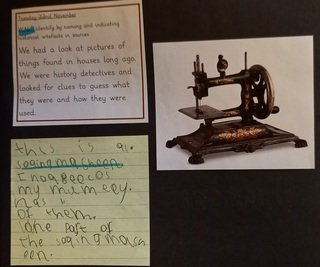 Tuesday 22nd November
identify by naming and indicating
historical artefacts in sources
We had a look at pictures of
things found in houses long ago.
We were history detectives and
looked for clues to guess what
they were and how they were
used.
this is a.
soginmasheen
my mummey.
has
of them.
one Part of
the soginmash
een.